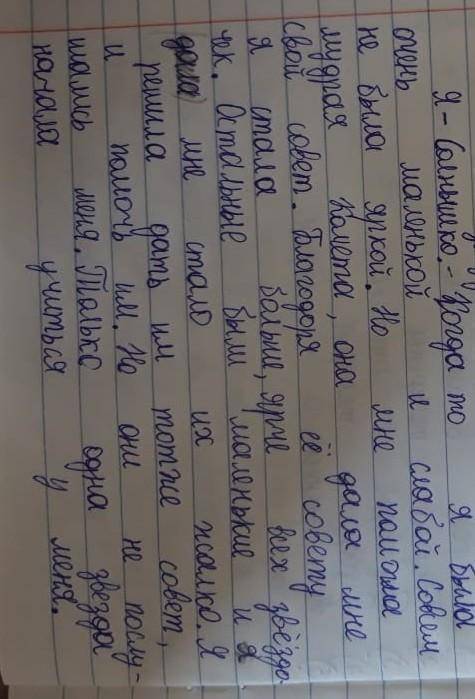 Я - Солнышко. - Когда то я была
очень маленькой и слабой. Совем
не была яркой. Но мне помогла
мудрая Комета, она дала мне
свой совет. Благодоря её совету
я стала больше, ярче вех звёздо
чек. Остальные были маленькие и
мне стало их жалко. Я
решила дать им тотже совет,
и помочь им. Но они не послу-
шались меня. Только одна звезда
начала учиться у меня.